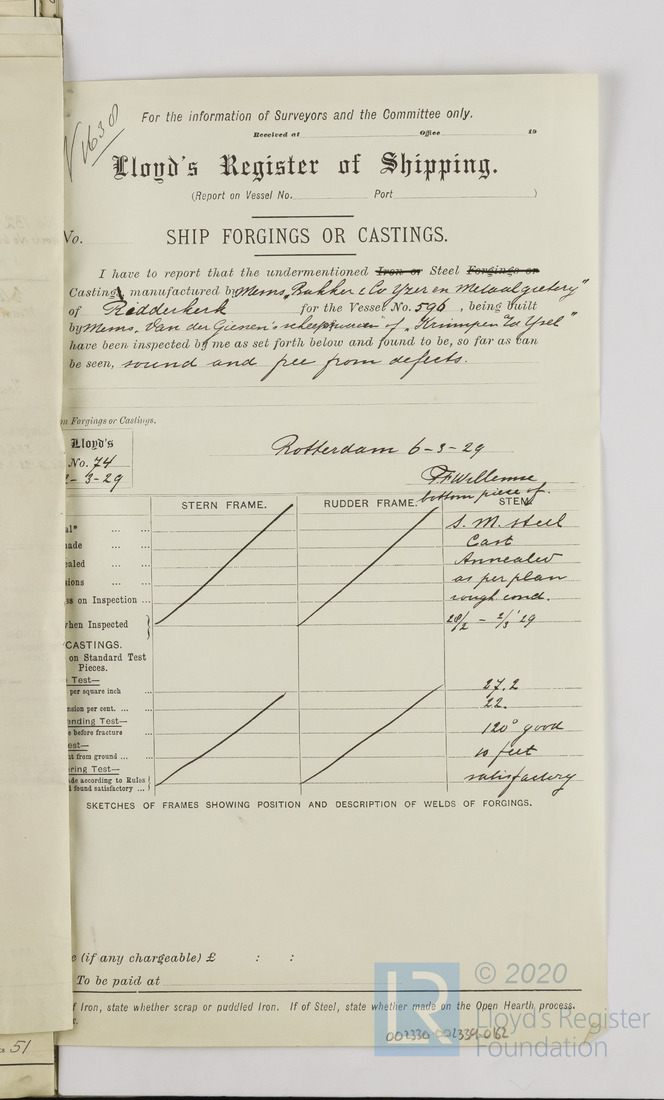 N 1638
For the information of Surveyors and the Committee only.
Received at Office 19
Lloyd's Register of Shipping.
(Report on Vessel No. Port )
No. SHIP FORGINGS OR CASTINGS.
I have to report that the undermentioned Iron or Steel Forgings or
Casting, manufactured by Messrs. "Bakker & Co Yzer en Metaalgietery"
of Ridderkerk for the Vessel No. 596, being built
by Messrs. Van der Giessen's of "Krimpen a/d Ysel"
have been inspected by me as set forth below and found to be, so far as can
be seen, sound and free from defects.
Forgings or Castings.
Lloyd's
No. 74
- 3-29
Rotterdam 6-3-29
Willemse
STERN FRAME. RUDDER FRAME. bottom piece of STEM
S. M. steel
Cast
Annealed
as per plan
on Inspection ... rough cond.
when Inspected 28/2 - 2/3 '29
CASTINGS.
on Standard Test
Pieces.
Test—
per square inch ... 27.2
per cent. ... ... 22.
Test—
before fracture 120° good
from ground ... ... 10 feet
Test—
according to Rules
found satisfactory ... satisfactory
SKETCHES OF FRAMES SHOWING POSITION AND DESCRIPTION OF WELDS OF FORGINGS.
(if any chargeable) £ : :
To be paid at
Iron, state whether scrap or puddled Iron. If of Steel, state whether made on the Open Hearth process.
51
LR
© 2020
Lloyd's Register
Foundation
002330-002339-0162